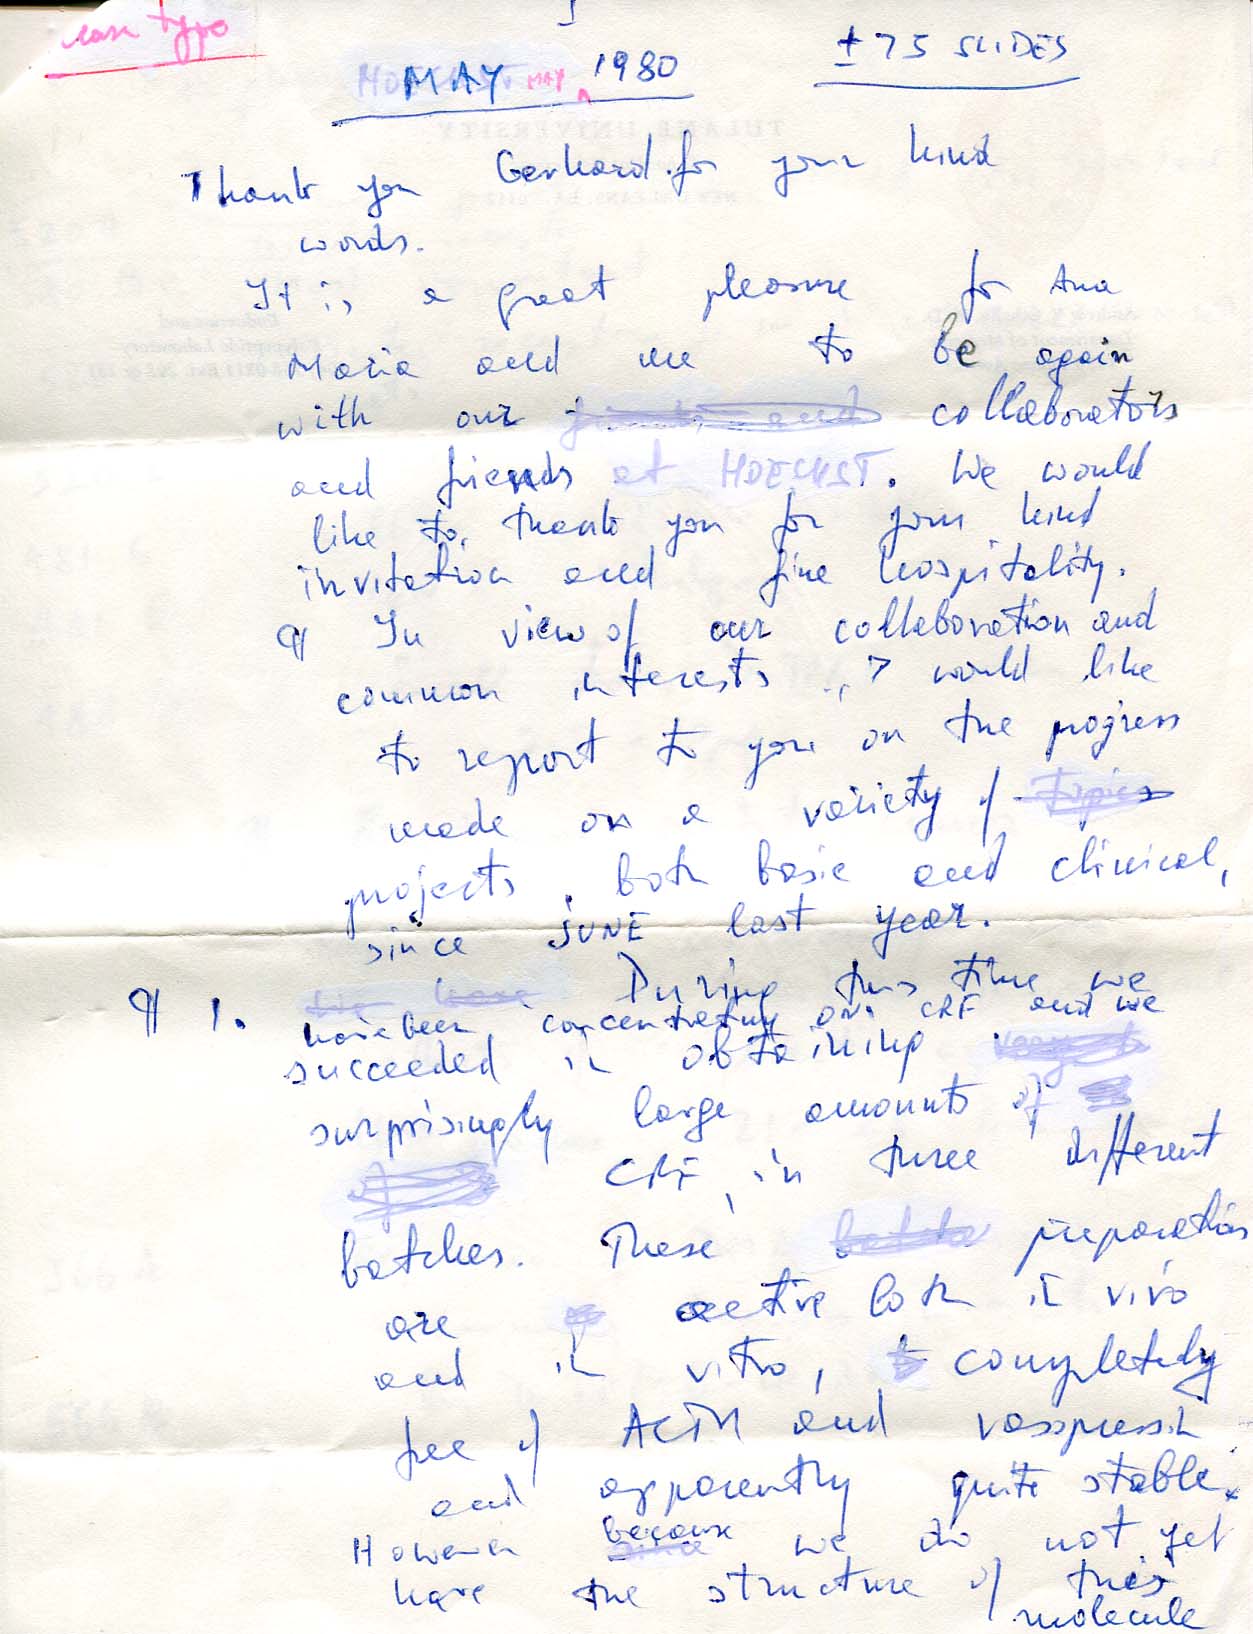 I
MAY MAY 1980
± 75 SLIDES
Thank you Gerhard for your kind
words.
It is a great pleasure for Ana
Maria and me to be again
with our collaborators
and friends at HOECHST. We would
like to, thank you for your kind
invitation and fine hospitality.
¶ In view of our collaboration and
common interests, I would like
to report to you on the progress
made on a variety of topics
projects, both basic and clinical,
since JUNE last year.
¶ 1. We have During this time we
have been concentrating on CRF and we
succeeded in obtaining
surprisingly large amounts of
CRF, in three different
batches. These batches preparations
are active both in vivo
and in vitro, completely
free of ACTH and vasopressin
and apparently quite stable.
However because since we do not yet
have the structure of this
molecule
TULANE UNIVERSITY